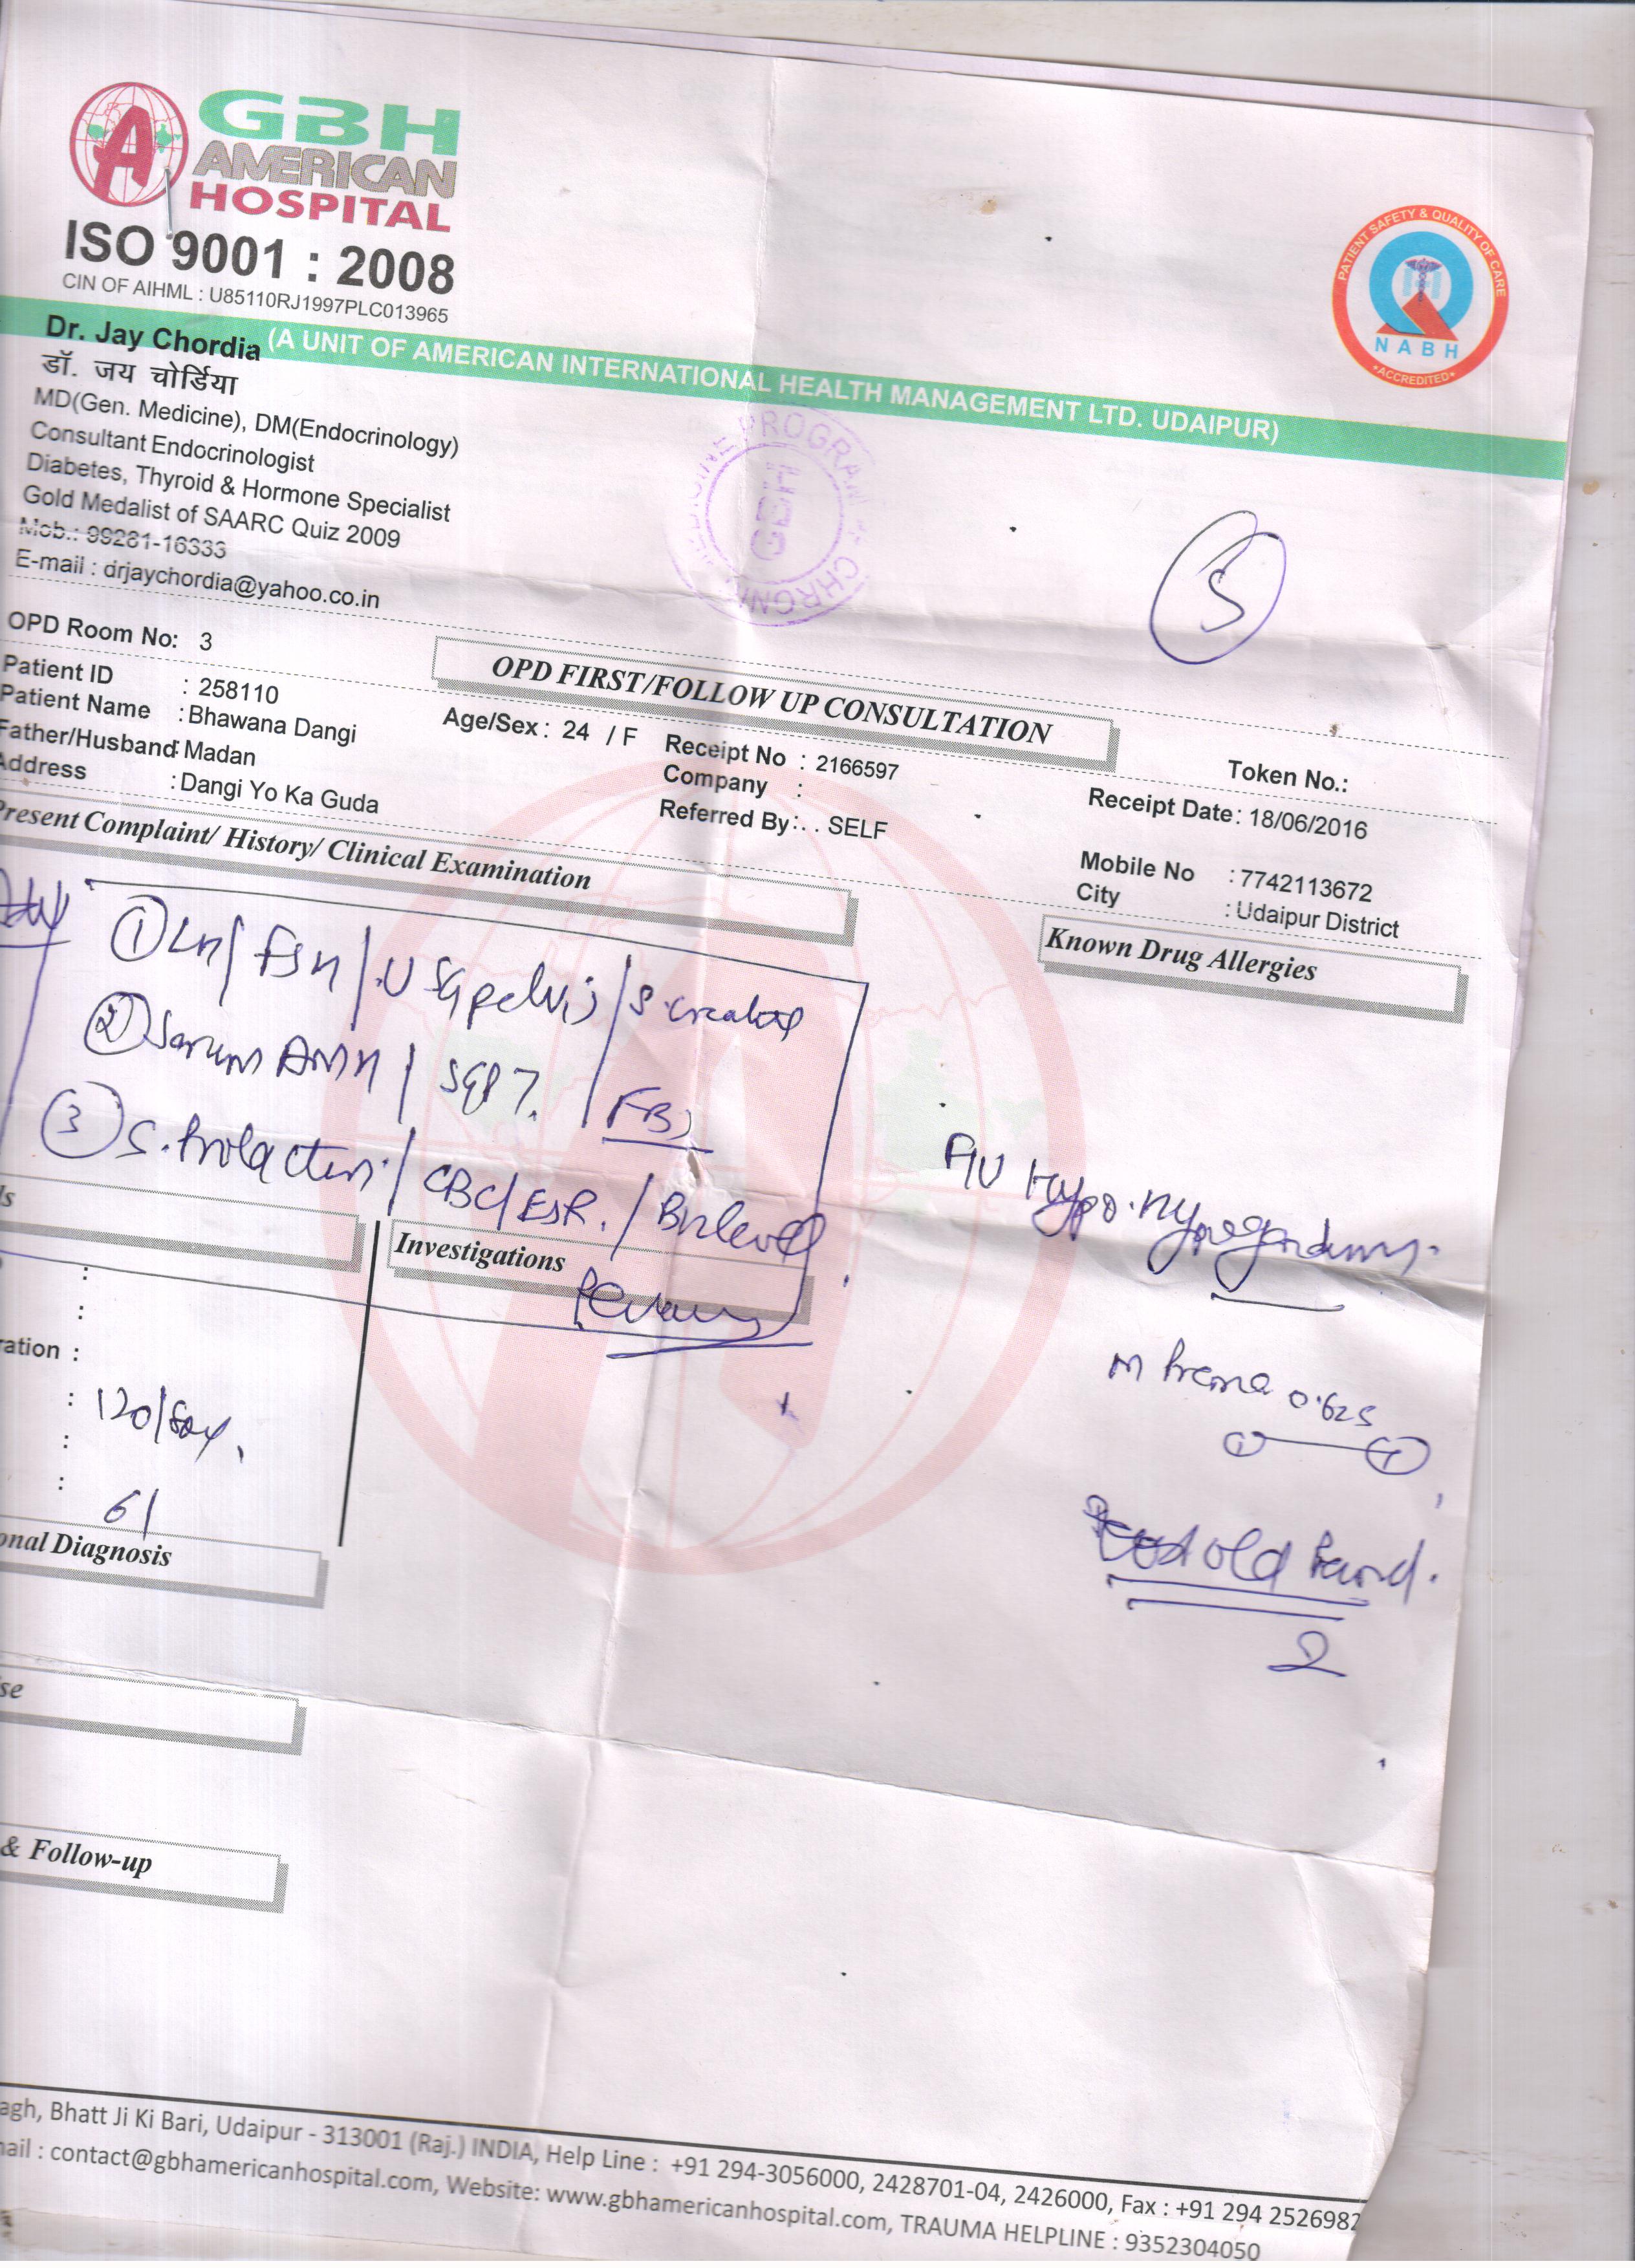 GBH
AMERICAN
HOSPITAL
ISO 9001 : 2008
CIN OF AIHML : U85110RJ1997PLC013965
(A UNIT OF AMERICAN INTERNATIONAL HEALTH MANAGEMENT LTD. UDAIPUR)
PATIENT SAFETY & QUALITY OF CARE
NABH
•ACCREDITED•
Dr. Jay Chordia
डॉ. जय चोर्डिया
MD(Gen. Medicine), DM(Endocrinology)
Consultant Endocrinologist
Diabetes, Thyroid & Hormone Specialist
Gold Medalist of SAARC Quiz 2009
Mob.: 99281-16333
E-mail : drjaychordia@yahoo.co.in
GBH
OPD Room No: 3
OPD FIRST/FOLLOW UP CONSULTATION
Token No.:
Patient ID : 258110
Patient Name : Bhawana Dangi
Age/Sex : 24 / F
Receipt No : 2166597
Receipt Date: 18/06/2016
Father/Husband: Madan
Company :
Mobile No : 7742113672
Address : Dangi Yo Ka Guda
Referred By:. . SELF
City : Udaipur District
Present Complaint/ History/ Clinical Examination
Known Drug Allergies
① LH/ FSH/ USG pelvis/ S. creatinine
② Serum AMH/ SGPT / FBS
③ S. Prolactin/ CBC/ ESR. /
F/U Hypo.
ls
Investigations
:
:
ration :
: 120/80
:
: 61
M Prema 0.625
① ①
old
onal Diagnosis
se
& Follow-up
agh, Bhatt Ji Ki Bari, Udaipur - 313001 (Raj.) INDIA, Help Line : +91 294-3056000, 2428701-04, 2426000, Fax : +91 294 2526982
nail : contact@gbhamericanhospital.com, Website: www.gbhamericanhospital.com, TRAUMA HELPLINE : 9352304050